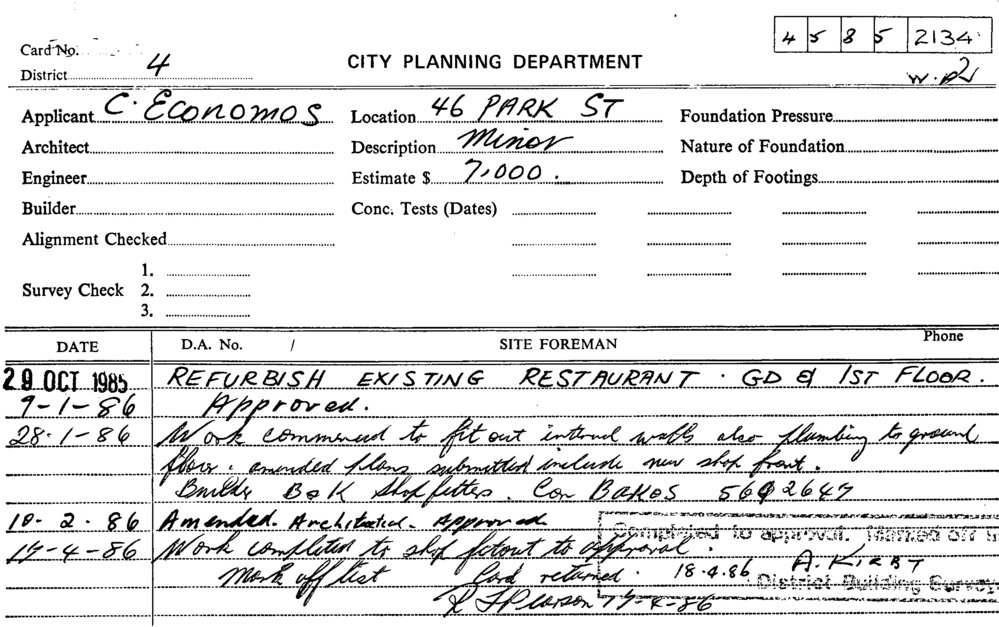 4 5 8 5 2134
Card No.
District 4
CITY PLANNING DEPARTMENT
Applicant C. ECONOMOS
Location 46 PARK ST
Foundation Pressure
Architect
Description Minor
Nature of Foundation
Engineer
Estimate $ 7,000.
Depth of Footings
Builder
Conc. Tests (Dates)
Alignment Checked
1.
Survey Check 2.
3.
DATE D.A. No. / SITE FOREMAN Phone
29 OCT 1985 REFURBISH EXISTING RESTAURANT. GD & 1ST FLOOR.
9-1-86 Approved.
28-1-86 Work commenced to fit out internal walls also plumbing to ground
floor. amended plans submitted include new shop front.
Builder B & K Shopfitters. Con BAKOS
10-2-86 Amended. Approved
17-4-86 Work completed to shop fitout to approval.
Completed to approval. Marked off
Mark off list Card returned. 18.4.86 A. KIRBY
District Building Survey
17-4-86